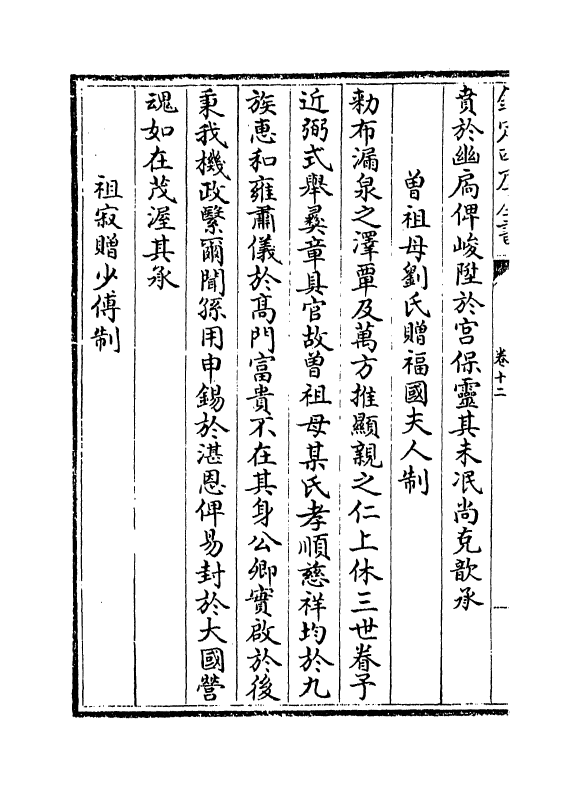 欽定四庫全書
卷十二
賁於幽扄俾峻陞於宫保靈其未泯尚克歆承
曽祖母劉氏贈福國夫人制
勅布漏泉之澤覃及萬方推顯親之仁上休三世眷予
近弼式舉彛章具官故曽祖母某氏孝順慈祥均於九
族恵和雍肅儀於髙門富貴不在其身公卿實啟於後
秉我機政繄爾聞孫用申錫於湛恩俾易封於大國營
魂如在茂渥其承
祖寂贈少傅制